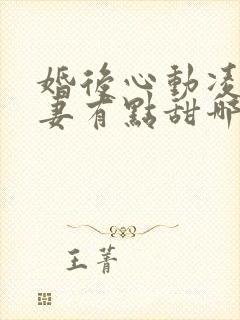 婚後心動凌
妻有點甜
王菁